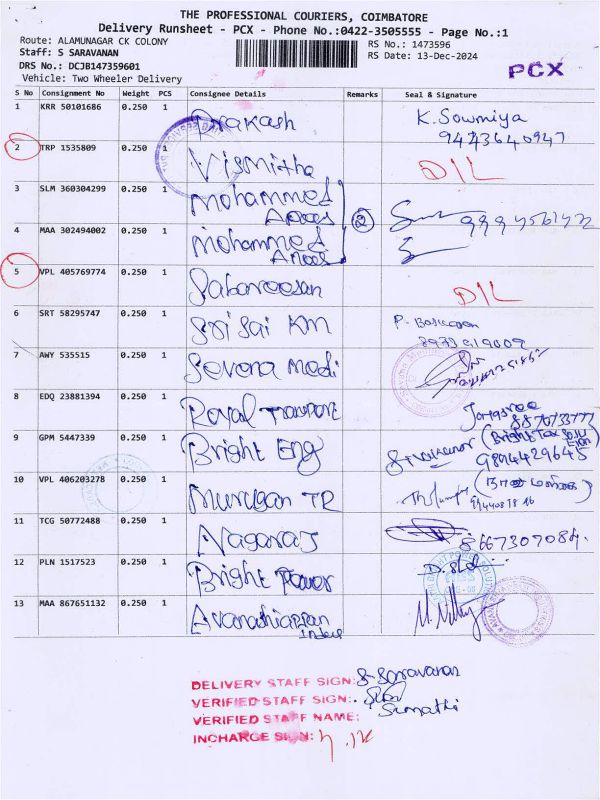 THE PROFESSIONAL COURIERS, COIMBATORE
Delivery Runsheet - PCX - Phone No.:0422-3505555 - Page No.:1
Route: ALAMUNAGAR CK COLONY
Staff: S SARAVANAN
DRS No.: DCJB147359601
Vehicle: Two Wheeler Delivery
RS No.: 1473596
RS Date: 13-Dec-2024
PCX
S No Consignment No Weight PCS Consignee Details Remarks Seal & Signature
1 KRR 50101686 0.250 1 Prakash K. Sowmiya
9443640947
2 TRP 1535809 0.250 1 Vismitha DIL
3 SLM 360304299 0.250 1 Mohammed
Anees
2
4 MAA 302494002 0.250 1 Mohammed
Anees
5 VPL 405769774 0.250 1 Sabareesan DIL
6 SRT 58295747 0.250 1 Sri Sai KM P. Baskaran
7 AWY 535515 0.250 1 Severa Medi
8 EDQ 23881394 0.250 1 Royal Transport Jayasree
9 GPM 5447339 0.250 1 Bright Eng (Bright Tax Solu
tion
9894429645
10 VPL 406203278 0.250 1 Murugan TR
11 TCG 50772488 0.250 1 Nagaraj
12 PLN 1517523 0.250 1 Bright Power
13 MAA 867651132 0.250 1 Avanashiappan
DELIVERY STAFF SIGN: S. Saravanan
VERIFIED STAFF SIGN:
VERIFIED STAFF NAME: Sumathi
INCHARGE SIGN: